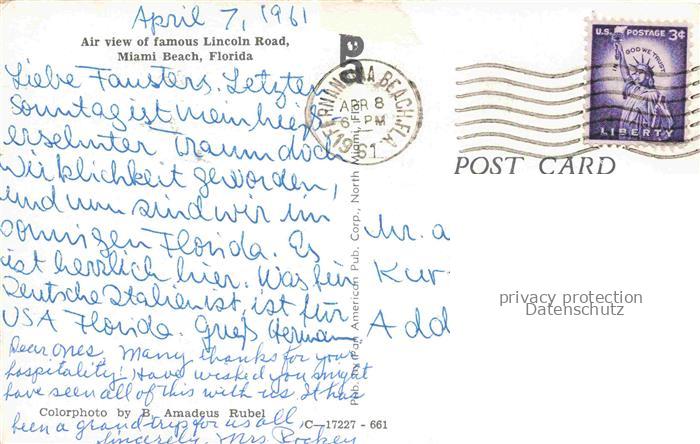 April 7, 1961
Air view of famous Lincoln Road,
Miami Beach, Florida
Liebe Fausters. Letzten
Sonntag ist mein heiß
ersehnter Traum doch
Wirklichkeit geworden,
und nun sind wir im
sonnigen Florida. Es
ist herrlich hier. Was für
Deutsche Italien ist, ist für
USA Florida. Gruß Hermann
Dear ones, Many thanks for your
hospitality! Have wished you might
have seen all of this with us. It has
Colorphoto by B. Amadeus Rubel
C-17227 - 661
been a grand trip for us all.
Sincerely, Mrs
Pub. by Pan American Pub. Corp., North Miami, Fla.
FERNANDINA BEACH, FLA.
APR 8
6 - PM
1961
U.S. POSTAGE 3¢
IN GOD WE TRUST
LIBERTY
POST CARD
Mr. a
Kur
Add
privacy protection
Datenschutz